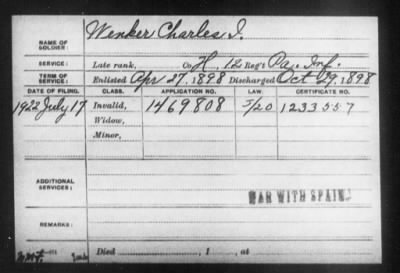 NAME OF SOLDIER: Wenker Charles I.
SERVICE: Late rank, Co H, 12 Reg't Pa. Inf.
TERM OF SERVICE: Enlisted Apr 27, 1898 Discharged Oct 29, 1898
DATE OF FILING. CLASS. APPLICATION NO. LAW. CERTIFICATE NO.
1922 July 17 Invalid, 1469808 5/20 1233557
Widow,
Minor,
ADDITIONAL SERVICES:
WAR WITH SPAIN
REMARKS:
Died , 1 , at